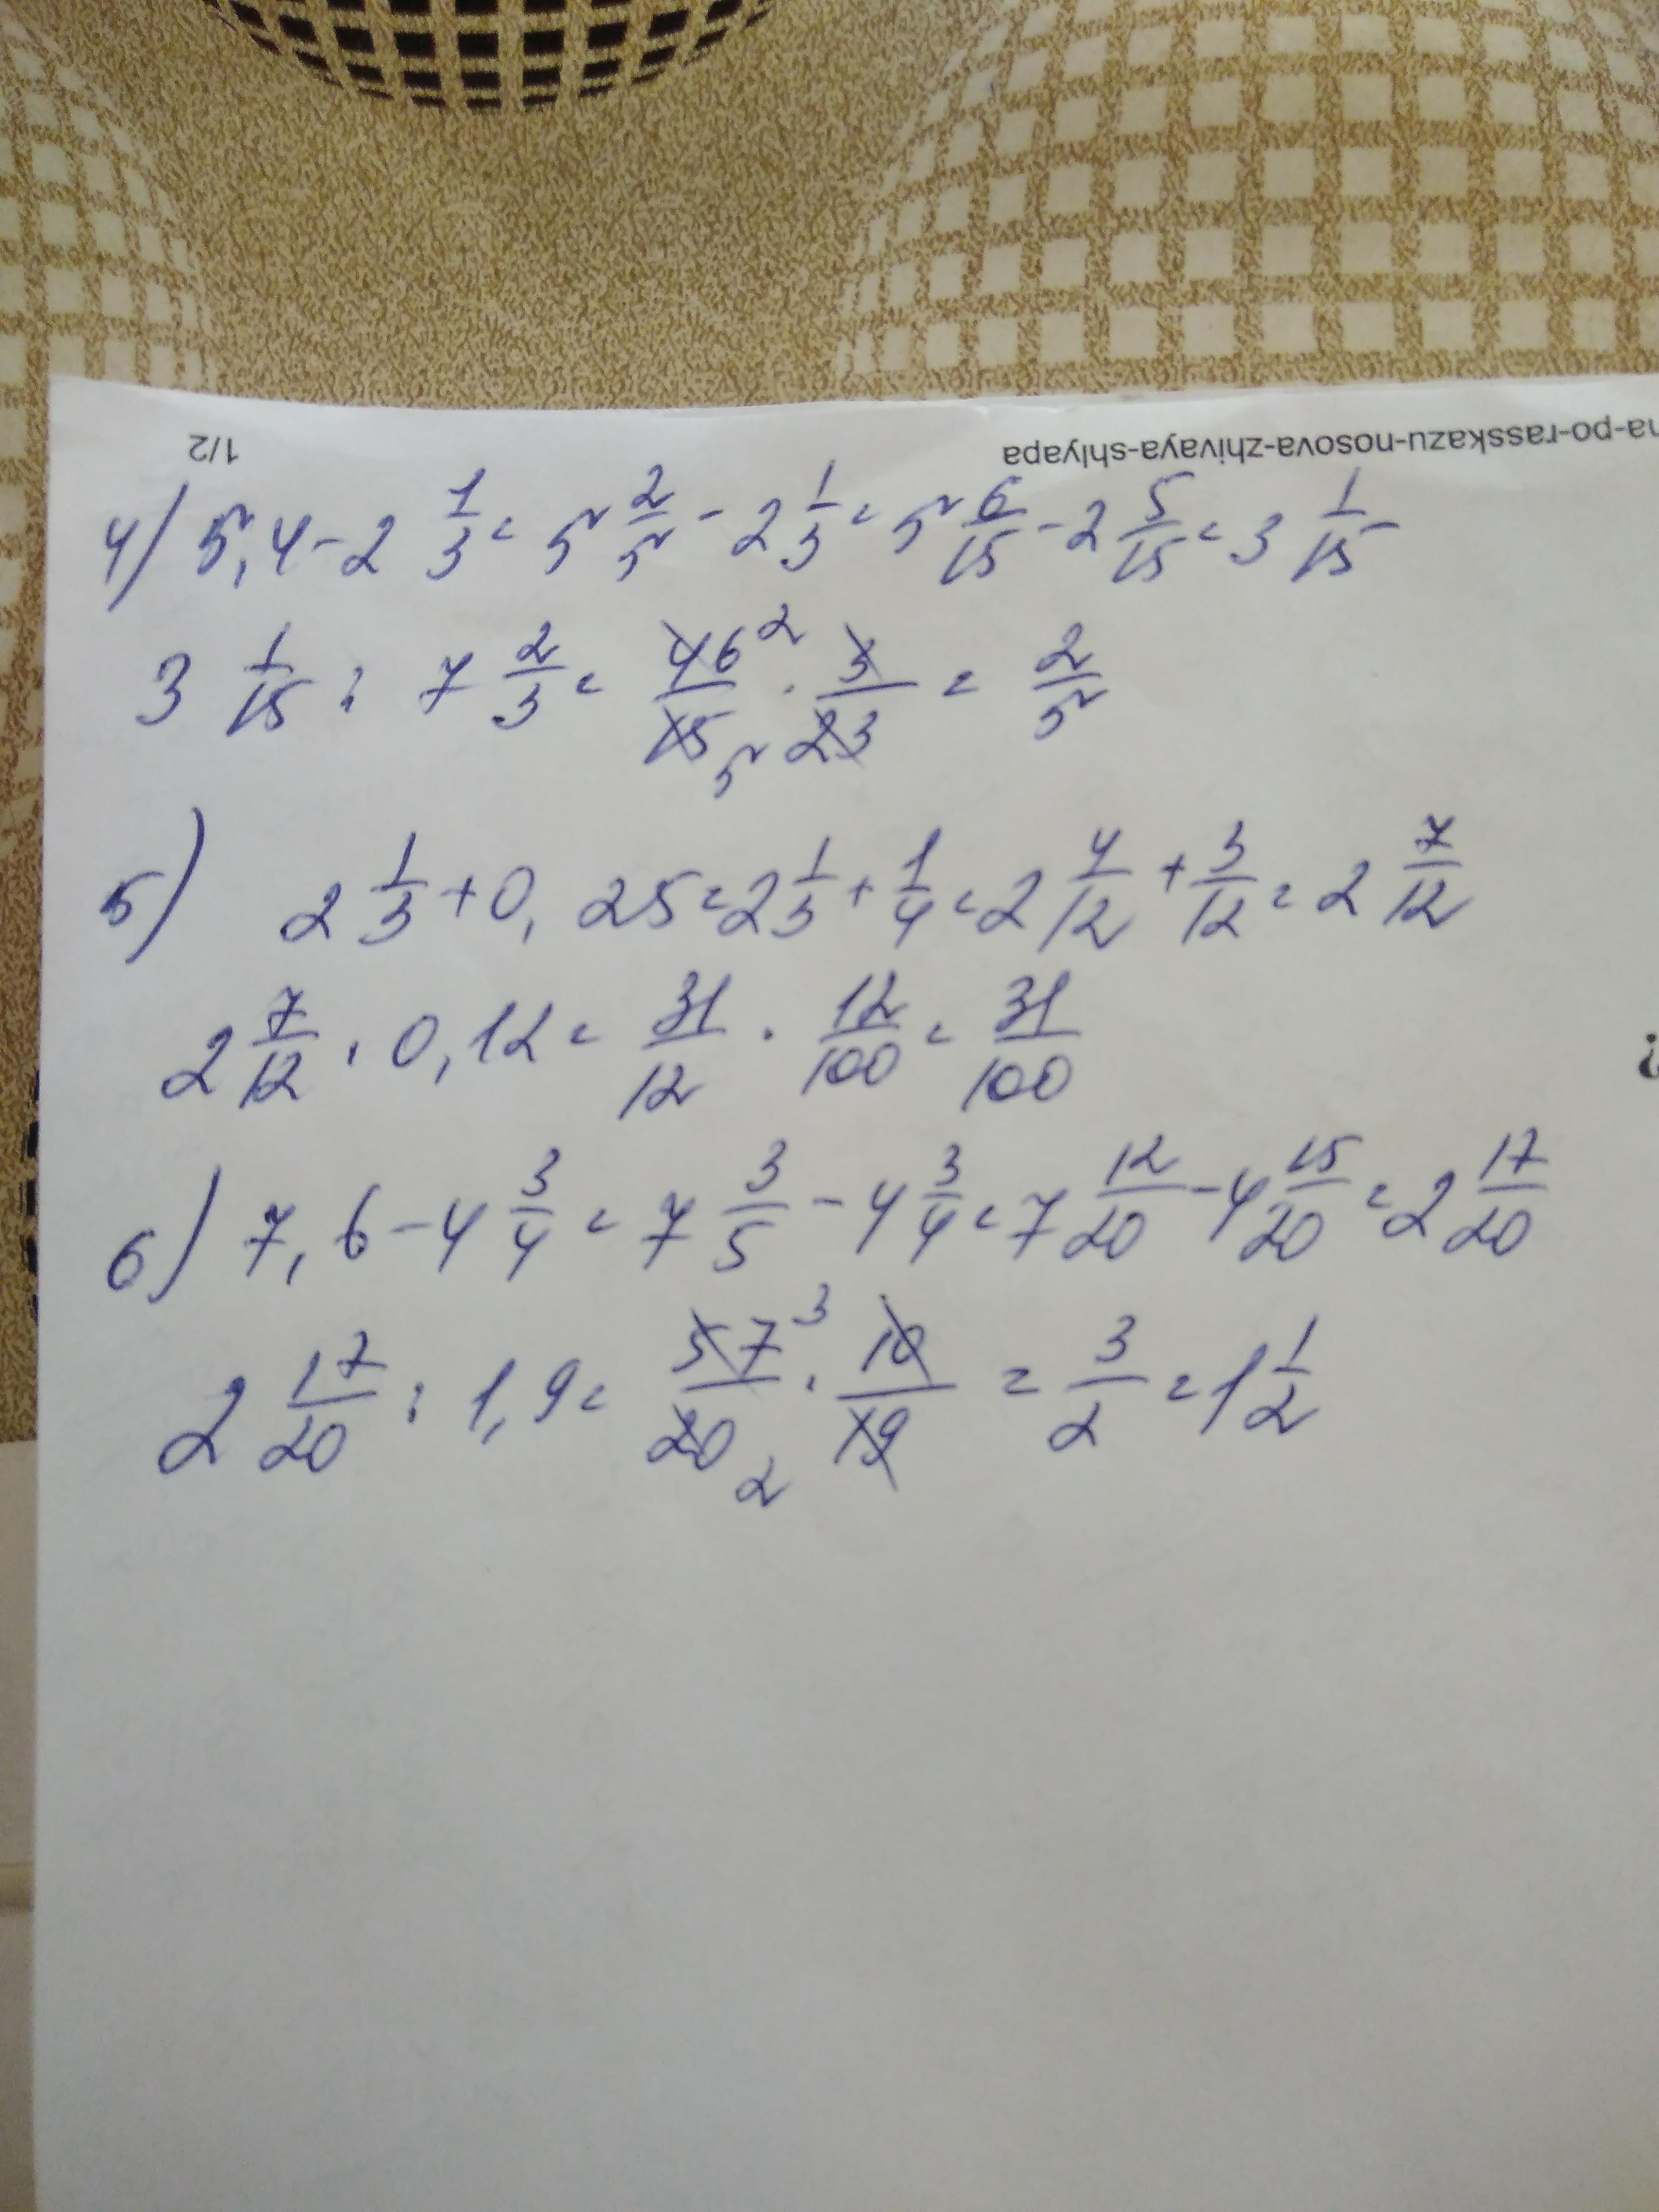 1/2
na-po-rasskazu-nosova-zhivaya-shlyapa
4) 5,4 - 2 1/3 = 5 2/5 - 2 1/3 = 5 6/15 - 2 5/15 = 3 1/15
3 1/15 : 7 2/3 = 46/15 · 3/23 = 2/5
2
5
5) 2 1/3 + 0,25 = 2 1/3 + 1/4 = 2 4/12 + 3/12 = 2 7/12
2 7/12 · 0,12 = 31/12 · 12/100 = 31/100
6) 7,6 - 4 3/4 = 7 3/5 - 4 3/4 = 7 12/20 - 4 15/20 = 2 17/20
2 17/20 : 1,9 = 57/20 · 10/19 = 3/2 = 1 1/2
3
2
?